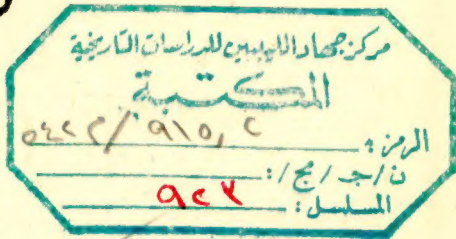 مركز جهاد الليبيين للدراسات التاريخية
المكتبة
الرمز: ٩١٥,٢ / م٥٤٢
ن / جـ / مج /:
المسلسل: ٩٢٣